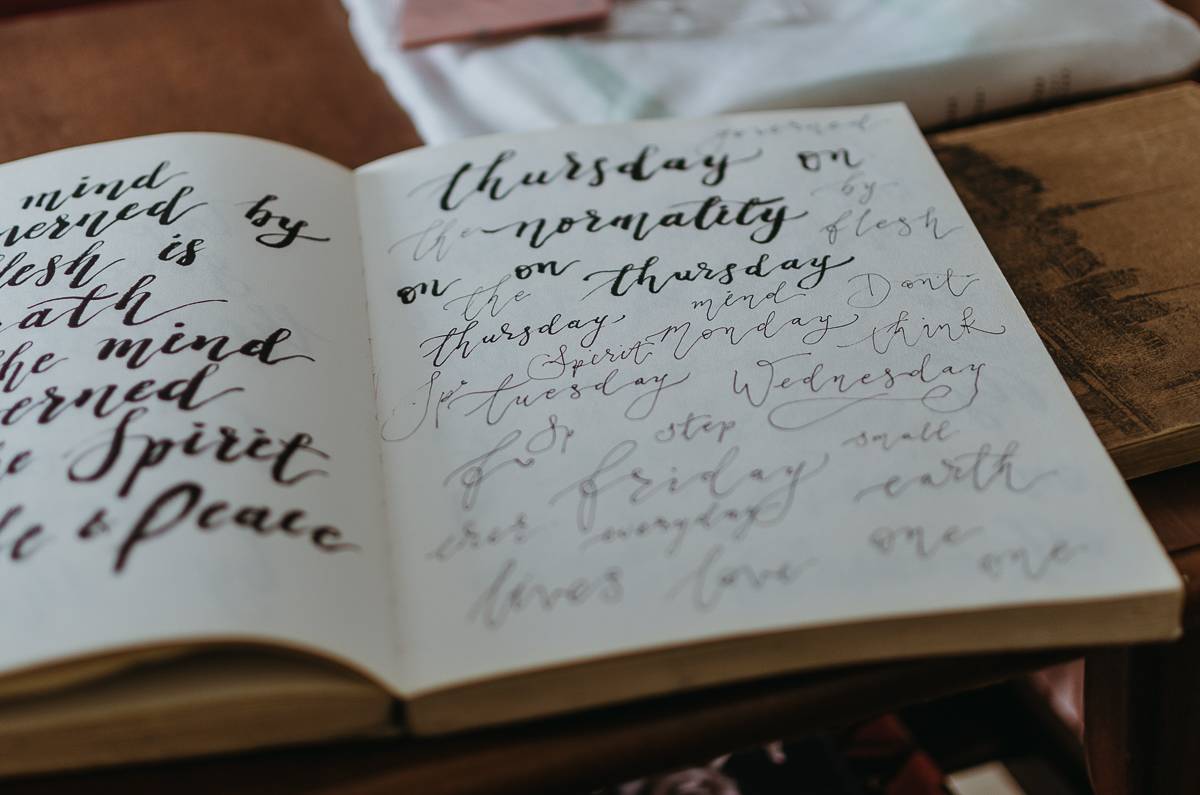 mind
by
is
mind
Spirit
& Peace
governed
thursday on
the normality by
flesh
on on thursday
the mind Don't
thursday monday think
Spirit
Sp tuesday Wednesday
f Sp step small
friday earth
everyday one
lives love one